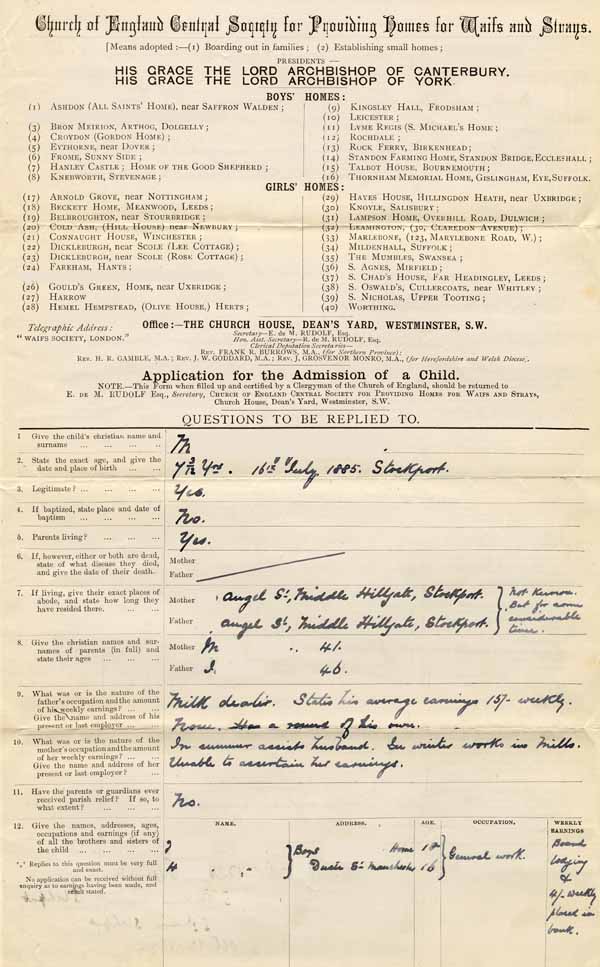 Church of England Central Society for Providing Homes for Waifs and Strays.
[Means adopted :—(1) Boarding out in families; (2) Establishing small homes;
PRESIDENTS —
HIS GRACE THE LORD ARCHBISHOP OF CANTERBURY.
HIS GRACE THE LORD ARCHBISHOP OF YORK
BOYS' HOMES:
(1) ASHDON (ALL SAINTS' HOME), near SAFFRON WALDEN;
(3) BRON MEIRION, ARTHOG, DOLGELLY;
(4) CROYDON (GORDON HOME);
(5) EYTHORNE, near DOVER;
(6) FROME, SUNNY SIDE;
(7) HANLEY CASTLE; HOME OF THE GOOD SHEPHERD;
(8) KNEBWORTH, STEVENAGE;
(9) KINGSLEY HALL, FRODSHAM;
(10) LEICESTER;
(11) LYME REGIS (S. MICHAEL'S HOME;
(12) ROCHDALE;
(13) ROCK FERRY, BIRKENHEAD;
(14) STANDON FARMING HOME, STANDON BRIDGE, ECCLESHALL;
(15) TALBOT HOUSE, BOURNEMOUTH;
(16) THORNHAM MEMORIAL HOME, GISLINGHAM, EYE, SUFFOLK.
GIRLS' HOMES:
(17) ARNOLD GROVE, near NOTTINGHAM;
(18) BECKETT HOME, MEANWOOD, LEEDS;
(19) BELBROUGHTON, near STOURBRIDGE;
(20) COLD ASH, (HILL HOUSE) near NEWBURY;
(21) CONNAUGHT HOUSE, WINCHESTER;
(22) DICKLEBURGH, near SCOLE (LEE COTTAGE);
(23) DICKLEBURGH, near SCOLE (ROSE COTTAGE);
(24) FAREHAM, HANTS;
(26) GOULD'S GREEN, HOME, near UXBRIDGE;
(27) HARROW
(28) HEMEL HEMPSTEAD, (OLIVE HOUSE,) HERTS;
(29) HAYES HOUSE, HILLINGDON HEATH, near UXBRIDGE;
(30) KNOYLE, SALISBURY;
(31) LAMPSON HOME, OVERHILL ROAD, DULWICH;
(32) LEAMINGTON, (30, CLAREDON AVENUE);
(33) MARLEBONE, (123, MARYLEBONE ROAD, W.);
(34) MILDENHALL, SUFFOLK;
(35) THE MUMBLES, SWANSEA;
(36) S. AGNES, MIRFIELD;
(37) S. CHAD'S HOUSE, FAR HEADINGLEY, LEEDS;
(38) S. OSWALD'S, CULLERCOATS, near WHITLEY;
(39) S. NICHOLAS, UPPER TOOTING;
(40) WORTHING.
Telegraphic Address:
"WAIFS SOCIETY, LONDON."
Office:—THE CHURCH HOUSE, DEAN'S YARD, WESTMINSTER, S.W.
Secretary—E. DE M. RUDOLF, Esq.
Hon. Asst. Secretary—R. DE M. RUDOLF, Esq.
Clerical Deputation Secretaries—
REV. FRANK R. BURROWS, M.A., (for Northern Province);
REV. H. R. GAMBLE, M.A.; REV. J. W. GODDARD, M.A.; REV. J. GROSVENOR MONRO, M.A., (for Herefordshire and Welsh Diocese).
Application for the Admission of a Child.
NOTE.—This Form when filled up and certified by a Clergyman of the Church of England, should be returned to
E. DE M. RUDOLF Esq., Secretary, CHURCH OF ENGLAND CENTRAL SOCIETY FOR PROVIDING HOMES FOR WAIFS AND STRAYS,
Church House, Dean's Yard, Westminster, S.W.
QUESTIONS TO BE REPLIED TO.
1 Give the child's christian name and
surname ... ... ... ...
M
2. State the exact age, and give the
date and place of birth ... ...
7 3/12 Yrs. 16th July 1885. Stockport.
3. Legitimate? ... ... ... ...
Yes.
4. If baptized, state place and date of
baptism ... ... ... ...
No.
5. Parents living? ... ... ...
Yes.
6. If, however, either or both are dead,
state of what disease they died,
and give the date of their death.
Mother
Father
7. If living, give their exact places of
abode, and state how long they
have resided there. ... ...
Mother Angel St., Middle Hillgate, Stockport.
Father Angel St., Middle Hillgate, Stockport.
Not known.
But for some
considerable
time.
8. Give the christian names and sur-
names of parents (in full) and
state their ages ... ... ...
Mother M 41.
Father J. 46.
9. What was or is the nature of the
father's occupation and the amount
of his weekly earnings? ... ...
Give the name and address of his
present or last employer ... ...
Milk dealer. States his average earnings 15/- weekly.
None. Has a round of his own.
10. What was or is the nature of the
mother's occupation and the amount
of her weekly earnings? ... ...
Give the name and address of her
present or last employer? ...
In summer assists husband. In winter works in Mills.
Unable to ascertain her earnings.
11. Have the parents or guardians ever
received parish relief? If so, to
what extent? ... ... ...
No.
12. Give the names, addresses, ages,
occupations and earnings (if any)
of all the brothers and sisters of
the child ... ... ... ...
*.* Replies to this question must be very full
and exact.
No application can be received without full
enquiry as to earnings having been made, and
result stated.
NAME. ADDRESS. AGE. OCCUPATION, WEEKLY
EARNINGS
J Boys Home 18
H Ducie St. Manchester 16
General work.
Board
lodging
&
4/- weekly
placed in
bank.